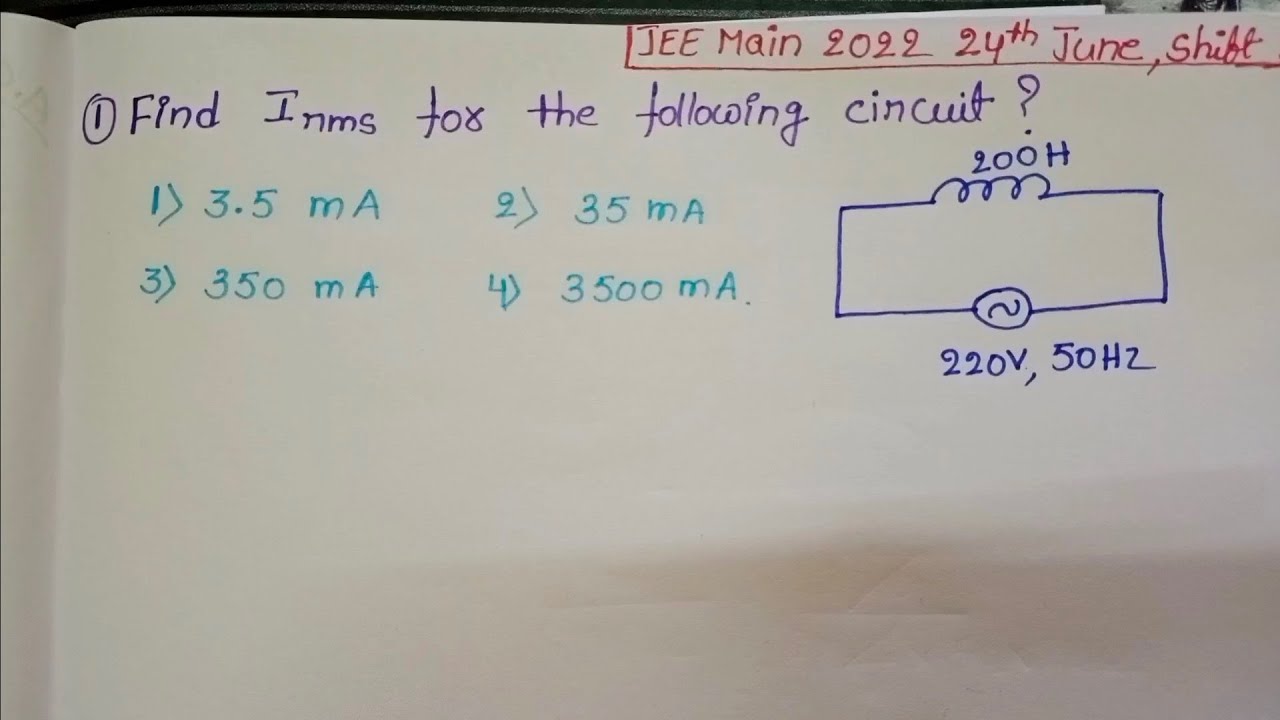 JEE Main 2022 24th June, Shift
① Find Irms for the following circuit ?
200H
1) 3.5 mA 2) 35 mA
3) 350 mA 4) 3500 mA.
220V, 50HZ